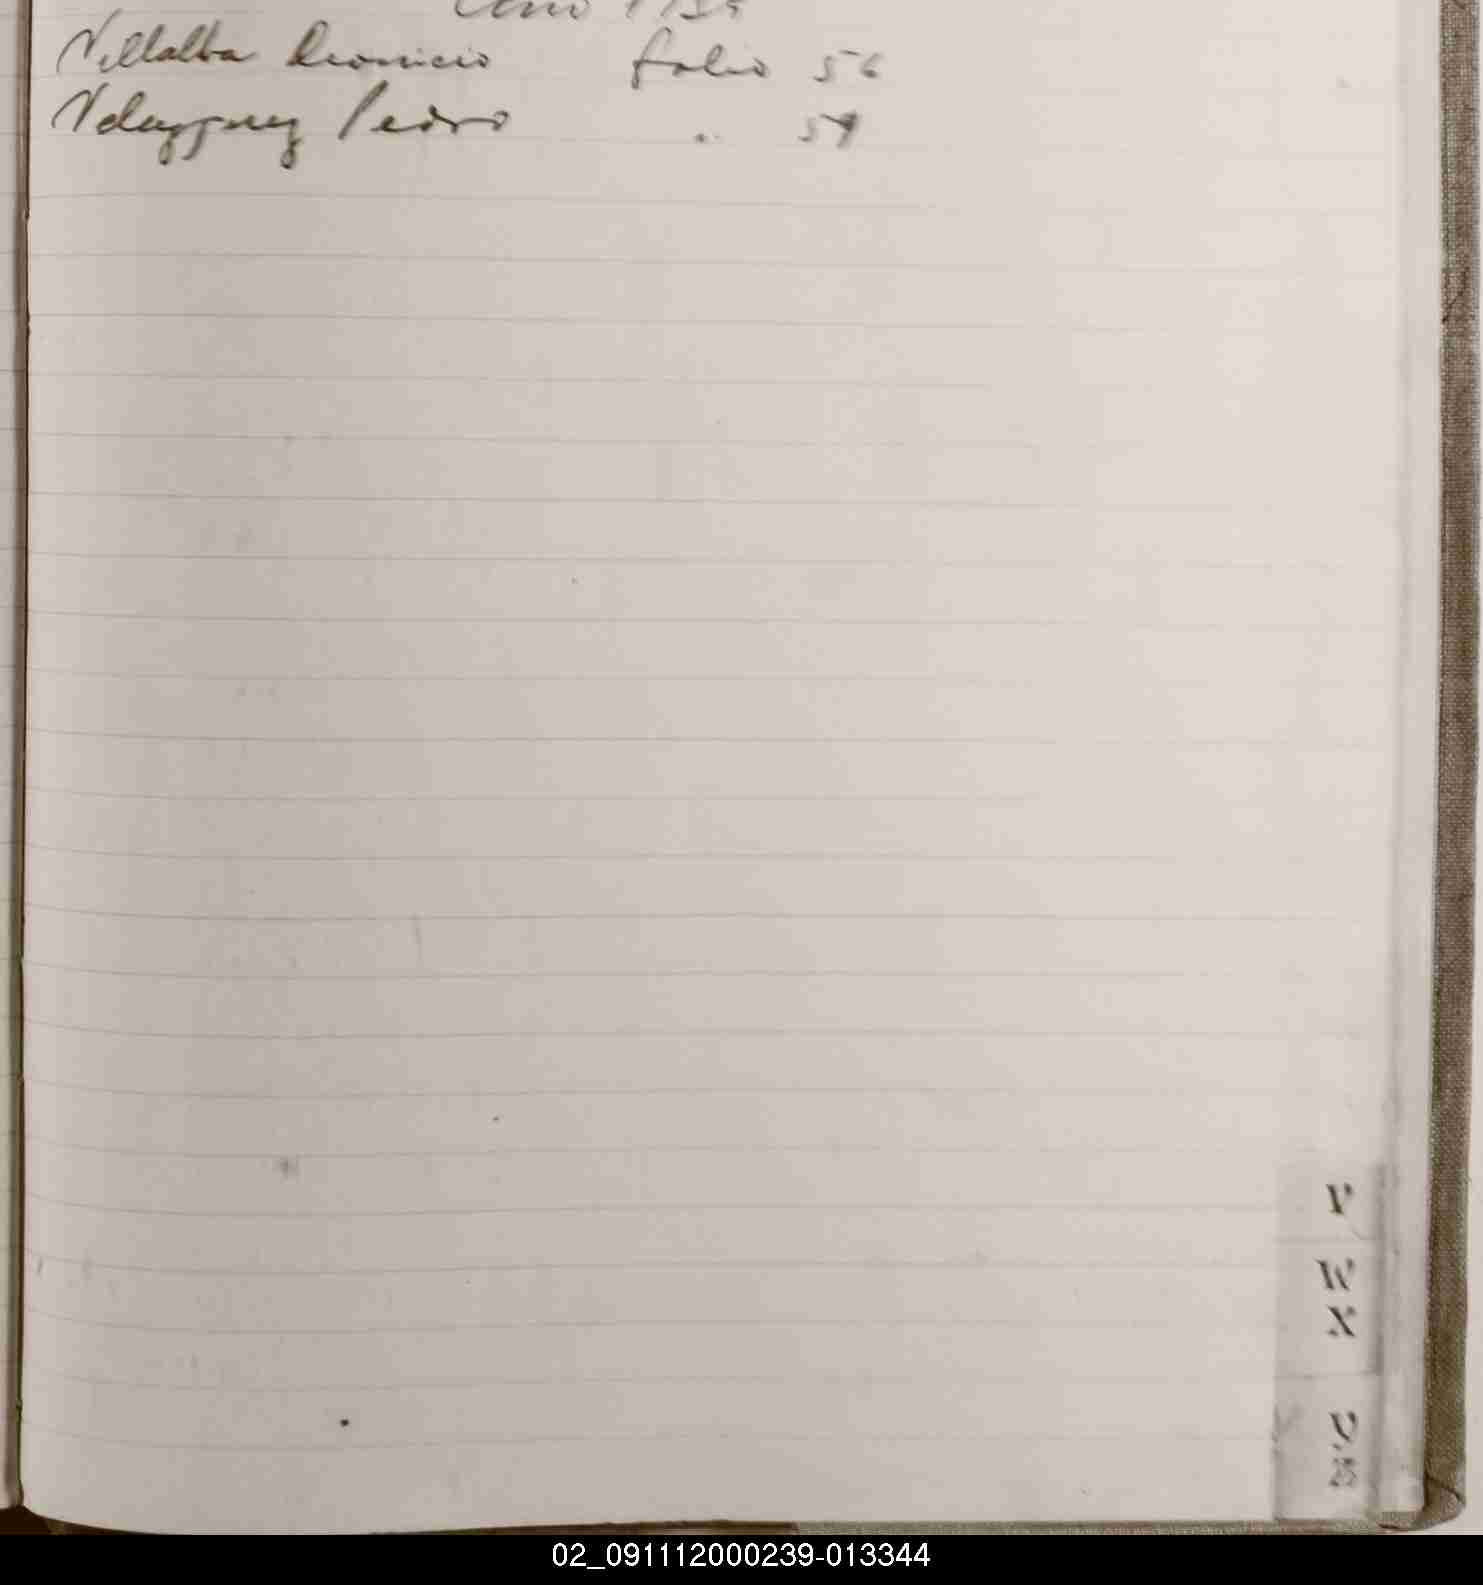 Año 1934
Villalba Dionicio folio 56
Velazquez Pedro " 59
V
W
X
02_091112000239-013344